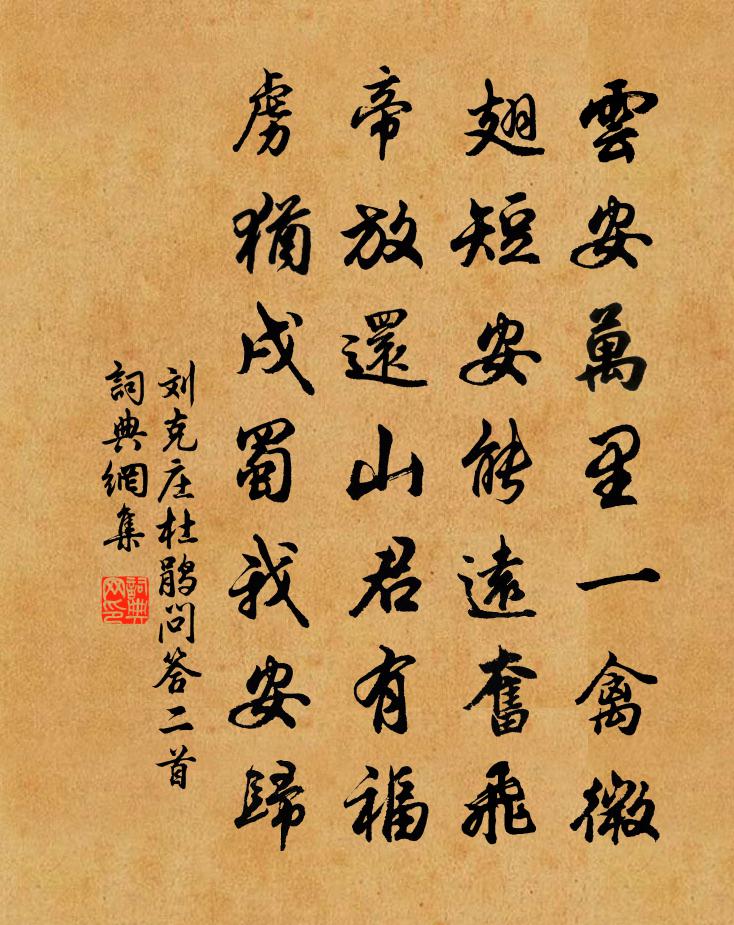 雲安萬里一禽微
翅短安能遠奮飛
帝放還山君有福
虜猶戍蜀我安歸
刘克庄杜鹃问答二首
詞典網集
詞典網印